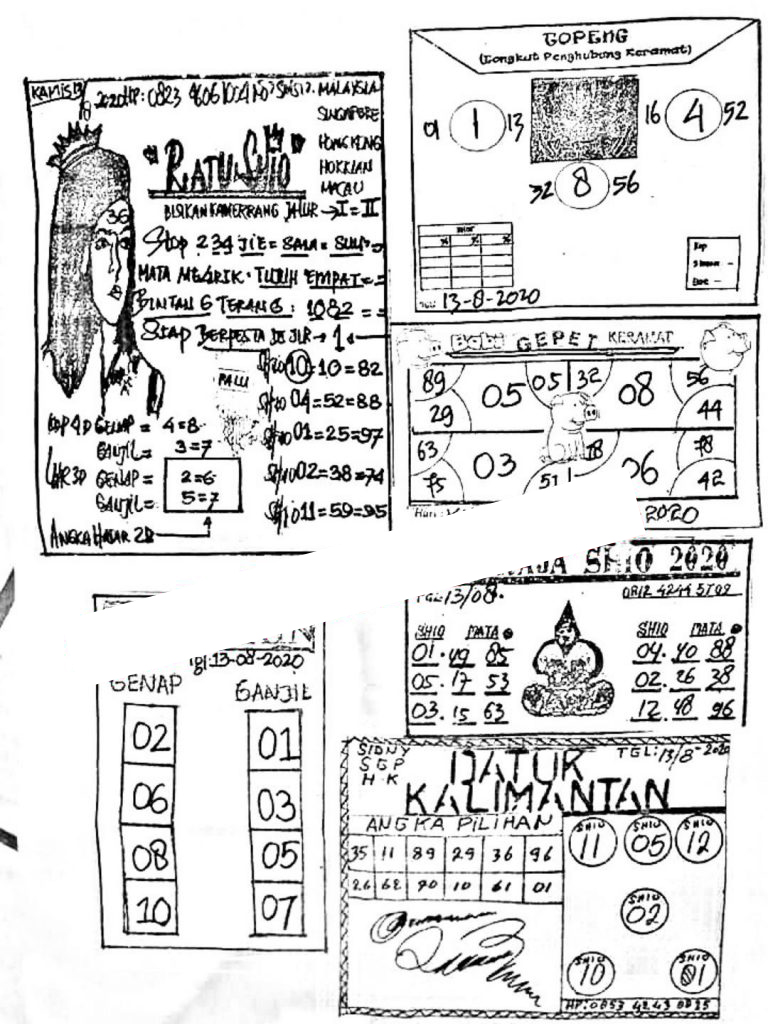 KAMIS 13/8 2020 HP: 0823
MALAYSIA
SINGAPORE
HONGKONG
HOKKIAN
MACAU
"RATU SHIO"
JALUR → I = II
36
Stop 234 JIE =
MATA MENARIK = TUJUH EMPAT =
BINTANG TERANG: 1082 =
SIAP BERPESTA DI JLR → 1
PALU
SHIO 10 = 10 = 82
SHIO 04 = 52 = 88
SHIO 01 = 25 = 97
SHIO 02 = 38 = 74
SHIO 11 = 59 = 95
GENAP = 4 = 8
GANJIL = 3 = 7
GENAP = 2 = 6
GANJIL = 5 = 7
4
ANGKA HAJAR 2D
TOPENG
(Tongkat Penghubung Keramat)
01 1 13
16 4 52
32 8 56
13-8-2020
Babi GEPET KERAMAT
89 05 05 32 08 56
29 44
63 78
75 03 51 78 06 42
2020
SHIO 2020
TGL 13/08.
SHIO MATA
01 . 49 85
05 . 17 53
03 . 15 63
SHIO MATA
04 . 40 88
02 . 26 38
12 . 48 96
Tgl: 13-08-2020
GENAP
02
06
08
10
GANJIL
01
03
05
07
SIDNY
SGP
HK
DATUK
KALIMANTAN
TGL: 13/8-2020
ANGKA PILIHAN
35 11 89 29 36 96
26 62 90 10 61 01
SHIO 11
SHIO 05
SHIO 12
SHIO 02
SHIO 10
SHIO 01
HP: 0853 4243 0825